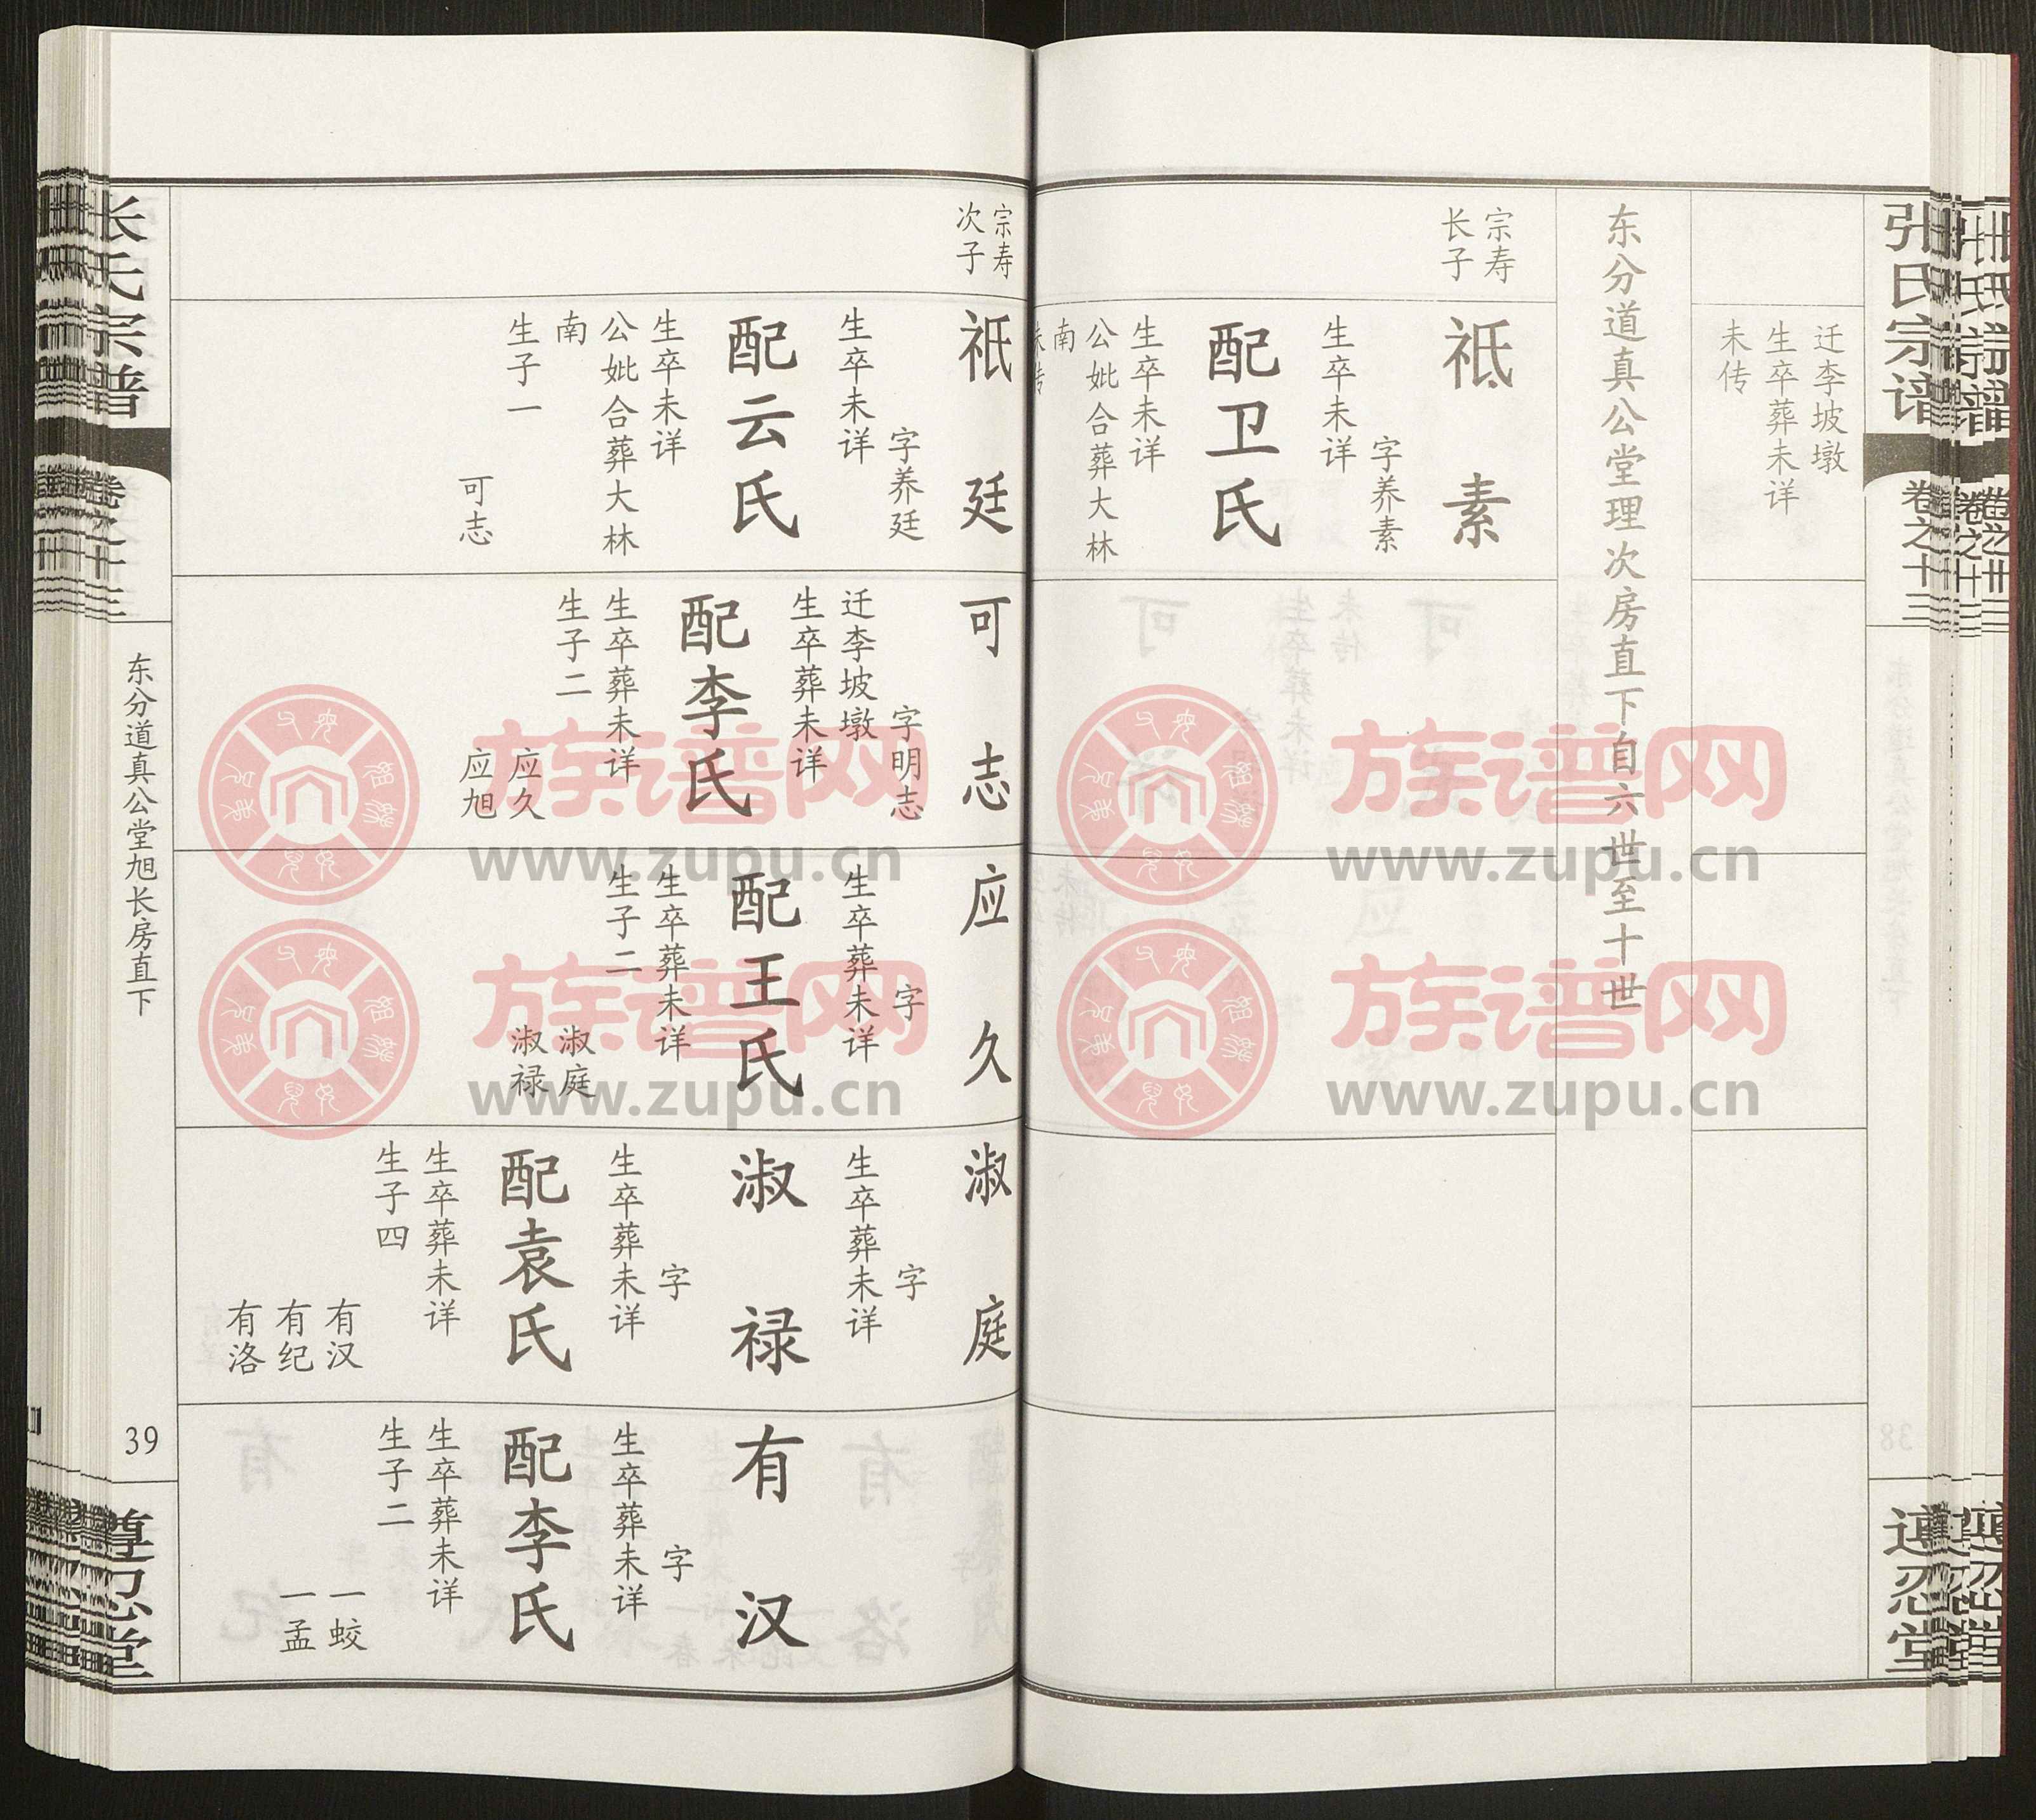 张氏宗谱
卷之十三
遵忍堂
迁李坡墩
生卒葬未详
未传
东分道真公堂理次房直下自六世至十世
宗寿
长子
祗素
字养素
生卒未详
配卫氏
生卒未详
公妣合葬大林
南
未传
宗寿
次子
祇廷
字养廷
生卒未详
配云氏
生卒未详
公妣合葬大林
南
生子一
可志
可志
字明志
迁李坡墩
生卒葬未详
配李氏
生卒葬未详
生子二
应久
应旭
应久
字
生卒葬未详
配王氏
生卒葬未详
生子二
淑庭
淑禄
淑庭
字
生卒葬未详
淑禄
字
生卒葬未详
配袁氏
生卒葬未详
生子四
有汉
有纪
有洛
有汉
字
生卒葬未详
配李氏
生卒葬未详
生子二
一蛟
一孟
张氏宗谱
卷之十三
东分道真公堂旭长房直下
39
遵忍堂
族谱网
www.zupu.cn
族谱网
www.zupu.cn
族谱网
www.zupu.cn
族谱网
www.zupu.cn